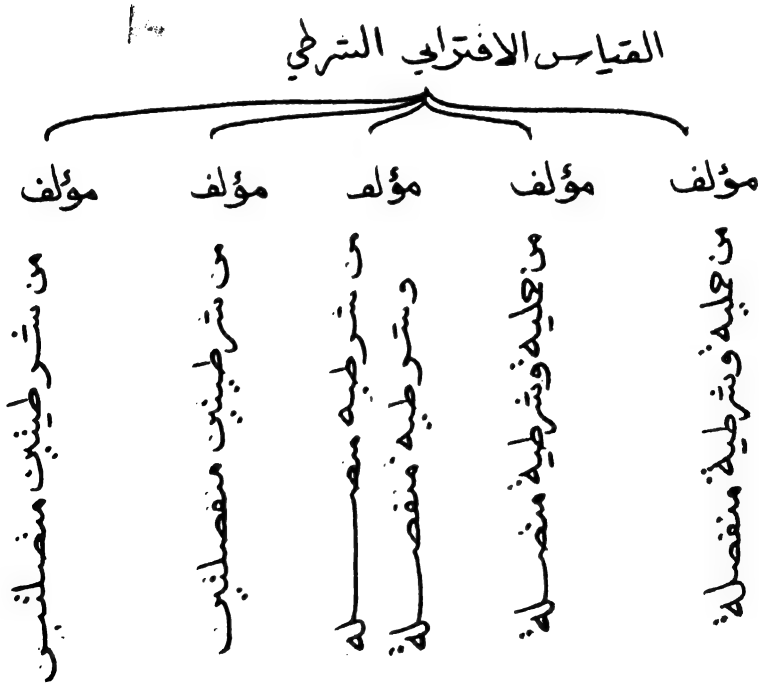 القياس الاقتراني الشرطي
مؤلف من حملية وشرطية منفصلة
مؤلف من حملية وشرطية متصلة
مؤلف من شرطية متصلة وشرطية منفصلة
مؤلف من شرطيتين منفصلتين
مؤلف من شرطيتين متصلتين